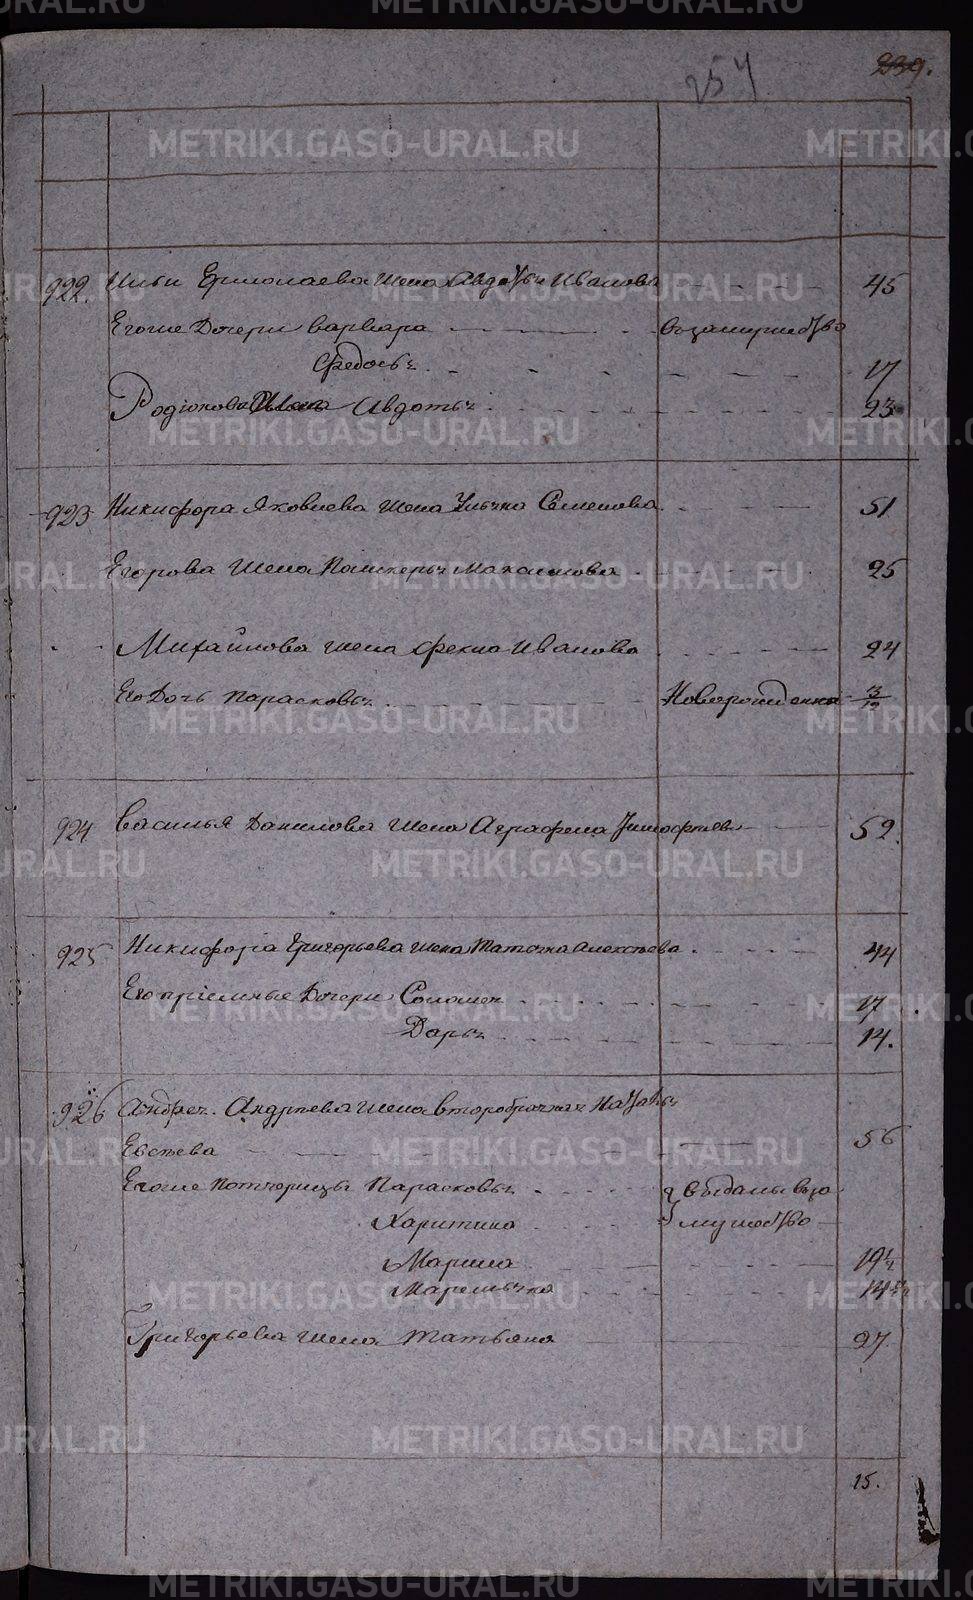 257
239.
922. Ильи Ермолаева жена Авдотья Иванова 45
Егоже Дочери Варвара в замужство
Федосья 17
Родіонова жена Авдотья 23
923 Никифора Яковлева жена Ульяна Семенова 51
Егорова жена Пелагерья Максимова 25
Михайлова жена Фекла Иванова 24
Его Дочь Парасковья Новорожденна 3/12
924 Василья Данилова жена Аграфена Тимофѣева 52.
925 Никифора Григорьева жена Татьяна Алексѣева 44
Его пріемные Дочери Соломея 17
Дарья 14.
926 Андрея Андрѣева жена второбрачная Наталья
Евсѣева 56
Егоже Потчерицы Парасковья выданы в за
Харитина мужство
Марина 19½
Маремьяна 14½
Григорьева жена Татьяна 27
15.
METRIKI.GASO-URAL.RU